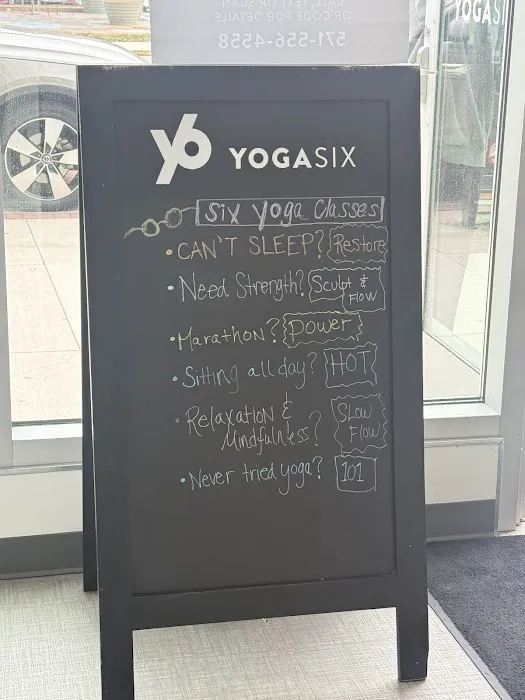 CALL, TEXT OR SCAN
QR CODE FOR DETAILS
571-556-4558
YOGASI
y6 YOGASIX
Six Yoga Classes
• CAN'T SLEEP? Restore
• Need Strength? Sculpt & Flow
• Marathon? Power
• Sitting all day? HOT
• Relaxation &
Mindfulness? Slow Flow
• Never tried yoga? 101